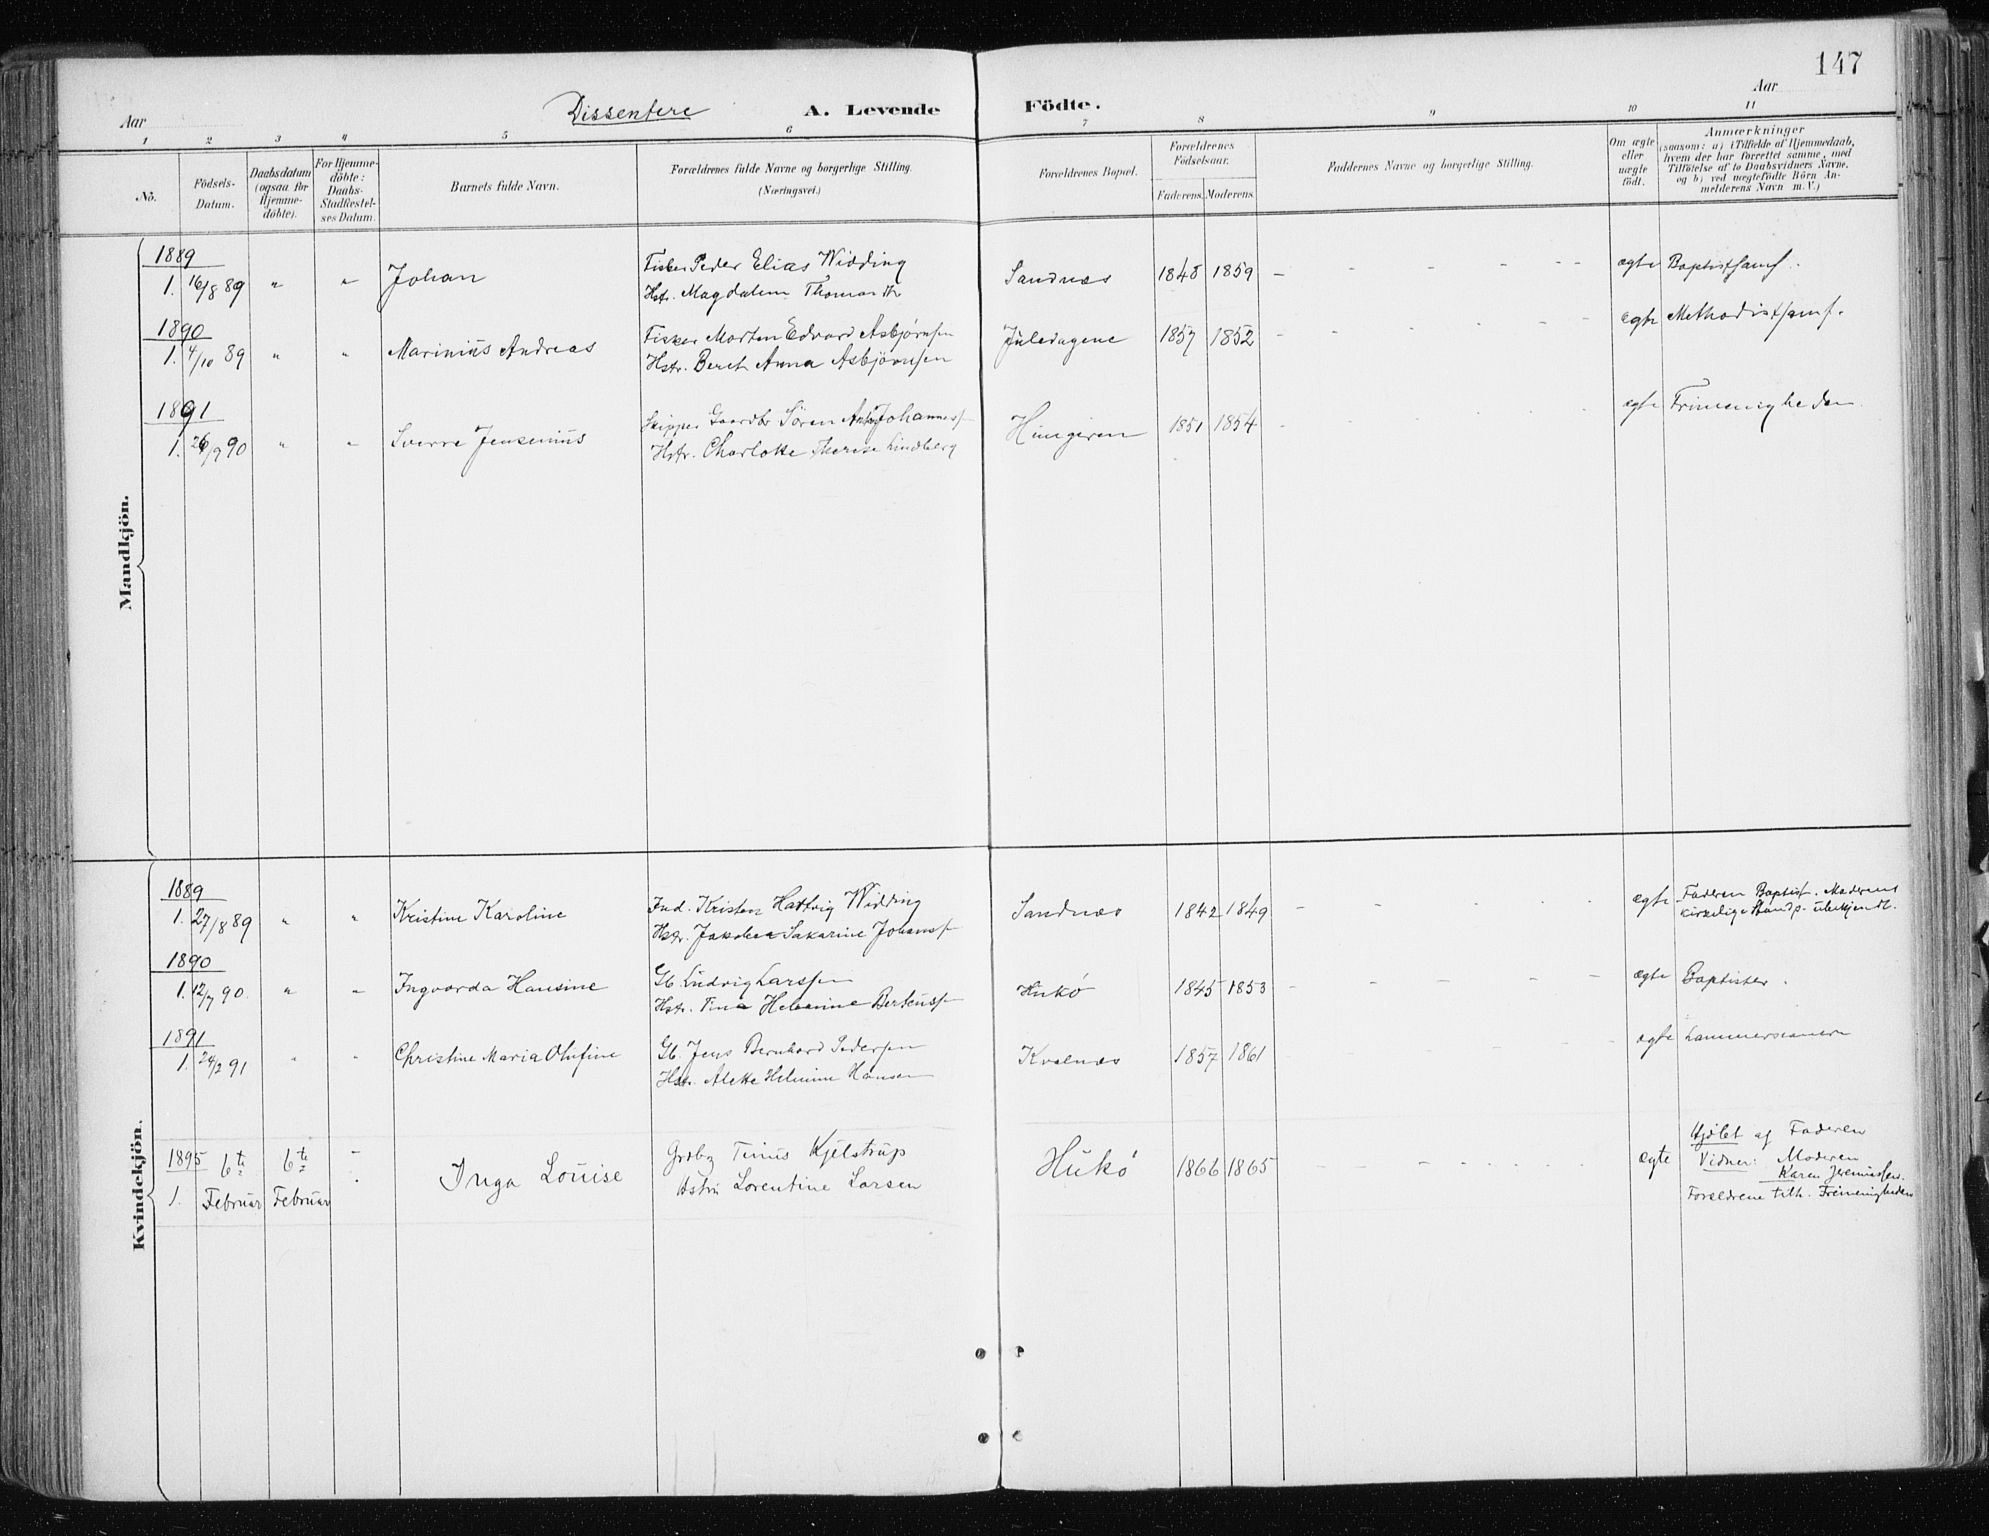 147
Dissentere A. Levende Födte.
Aar
Aar
1 2 3 4 5 6 7 8 9 10 11
No.
Födsels-Datum.
Daabsdatum (ogsaa for Hjemmedöbte).
For Hjemmedöbte: Daabs-Stadfæstelses Datum.
Barnets fulde Navn.
Forældrenes fulde Navne og borgerlige Stilling. (Næringsvei.)
Forældrenes Bopæl.
Forældrenes Födselsaar.
Faderens. Moderens.
Faddernes Navne og borgerlige Stilling.
Om ægte eller uægte födt.
Anmærkninger (saasom: a) i Tilfælde af Hjemmedaab, hvem der har forrettet samme, med Tilföielse af to Daabsvidners Navne, og b) ved uægtefödte Börn Anmelderens Navn m. V.)
Mandkjön.
1889
1. 16/8 89 " " Johan Fisker Peder Elias Widding Sandnæs 1848 1859 ægte Baptistsamf.
Hstr. Magdalena
1890
1. 4/10 89 " " Marinius Andreas Fisker Morten Edvard Asbjørnsen Juledagene 1857 1852 ægte Methodistsamf.
Hstr. Beret Anna Asbjørnsen
1891
1. 26/9 90 " " Sverre Jensenius Skipper Gaardbr Søren Johanness 1851 1854 ægte Frimenigheden
Hstr. Charlotte Therese Lindberg
Kvindekjön.
1889
1. 27/8 89 " " Kristine Karoline Ind. Kristen Hartvig Widding Sandnæs 1842 1849 ægte Faderen Baptist. Moderens
Hstr. Jakobea Sakarine Johanss kirkelige Standp. ubekjendt.
1890
1. 12/7 90 " " Ingvarda Hansine Gb. Ludvig Larssen Hukø 1845 1853 ægte Baptister.
Hstr. Tina Helmine Berteuss
1891
1. 24/2 91 " " Christine Maria Olufine Gb. Jens Bernhard Pedersen Kvalnæs 1857 1861 ægte Lammersianere
Hstr. Alette Helmine Hansen
1895 6te 6te Inga Louise Grdbr Tinus Kjelstrup Hukø 1866 1865 ægte Hjdbt af Faderen
1. Februar Februar Hstru Lorentine Larsen Vidner: Moderen
Karen Jeremiassen.
Forældrene tilh. Frimenigheden